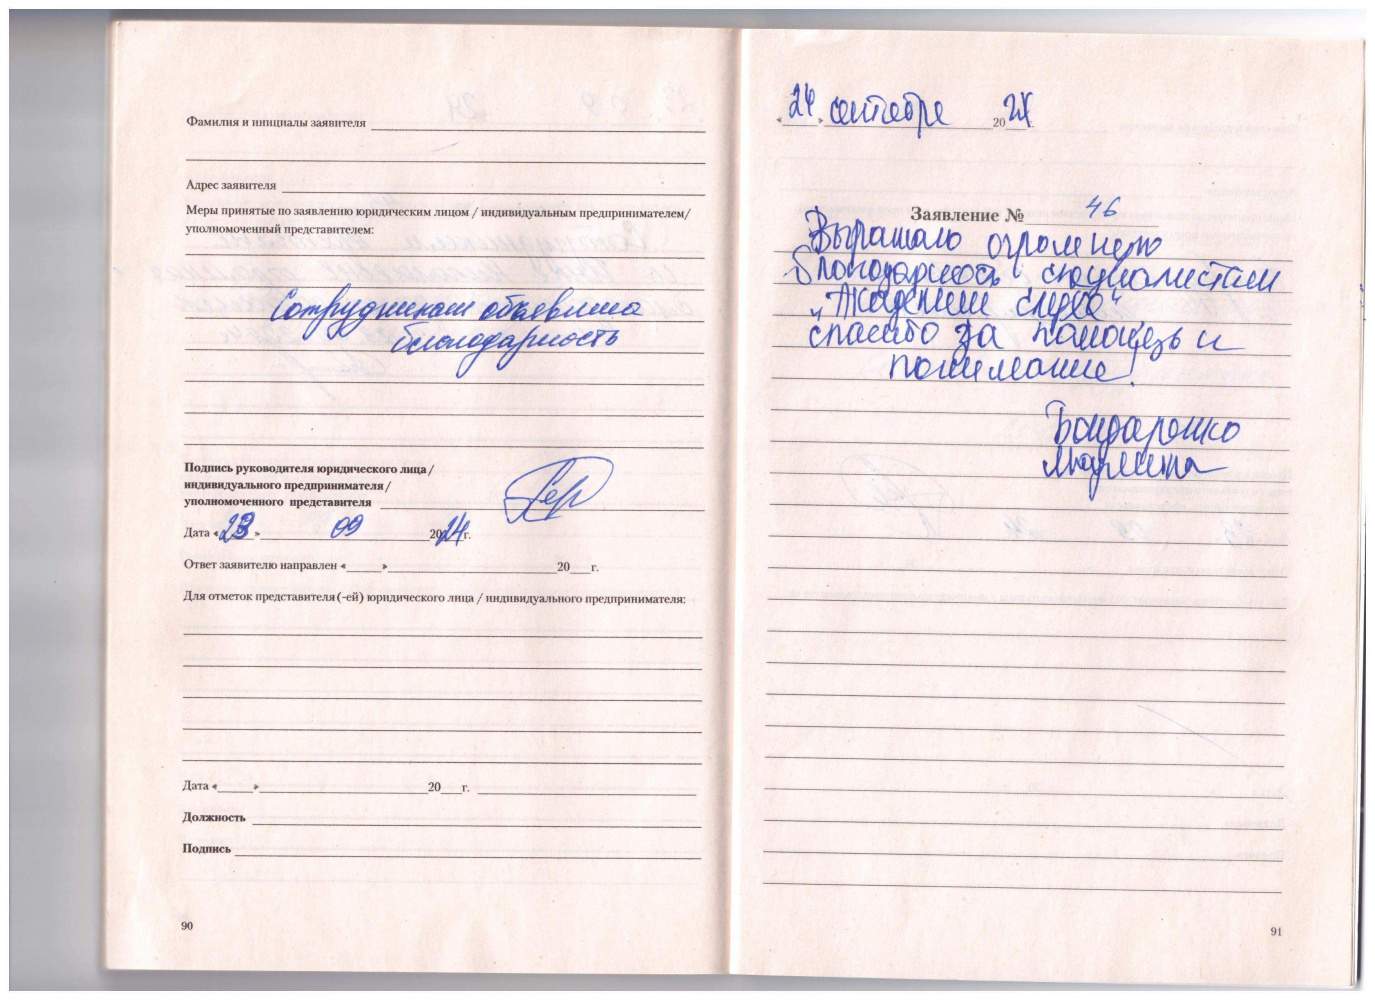 Фамилия и инициалы заявителя
Адрес заявителя
Меры принятые по заявлению юридическим лицом / индивидуальным предпринимателем/
уполномоченный представителем:
Сотрудникам объявлена
благодарность
Подпись руководителя юридического лица /
индивидуального предпринимателя /
уполномоченного представителя
Дата «23» 09 2024г.
Ответ заявителю направлен «___» 20___г.
Для отметок представителя (-ей) юридического лица / индивидуального предпринимателя:
Дата «___» 20___г.
Должность
Подпись
90
«24» сентября 20 24 г.
Заявление № 46
Выражаю огромную
благодарность специалистам
„Академии слуха“,
спасибо за помощь и
понимание!
Бондаренко
Марина
91